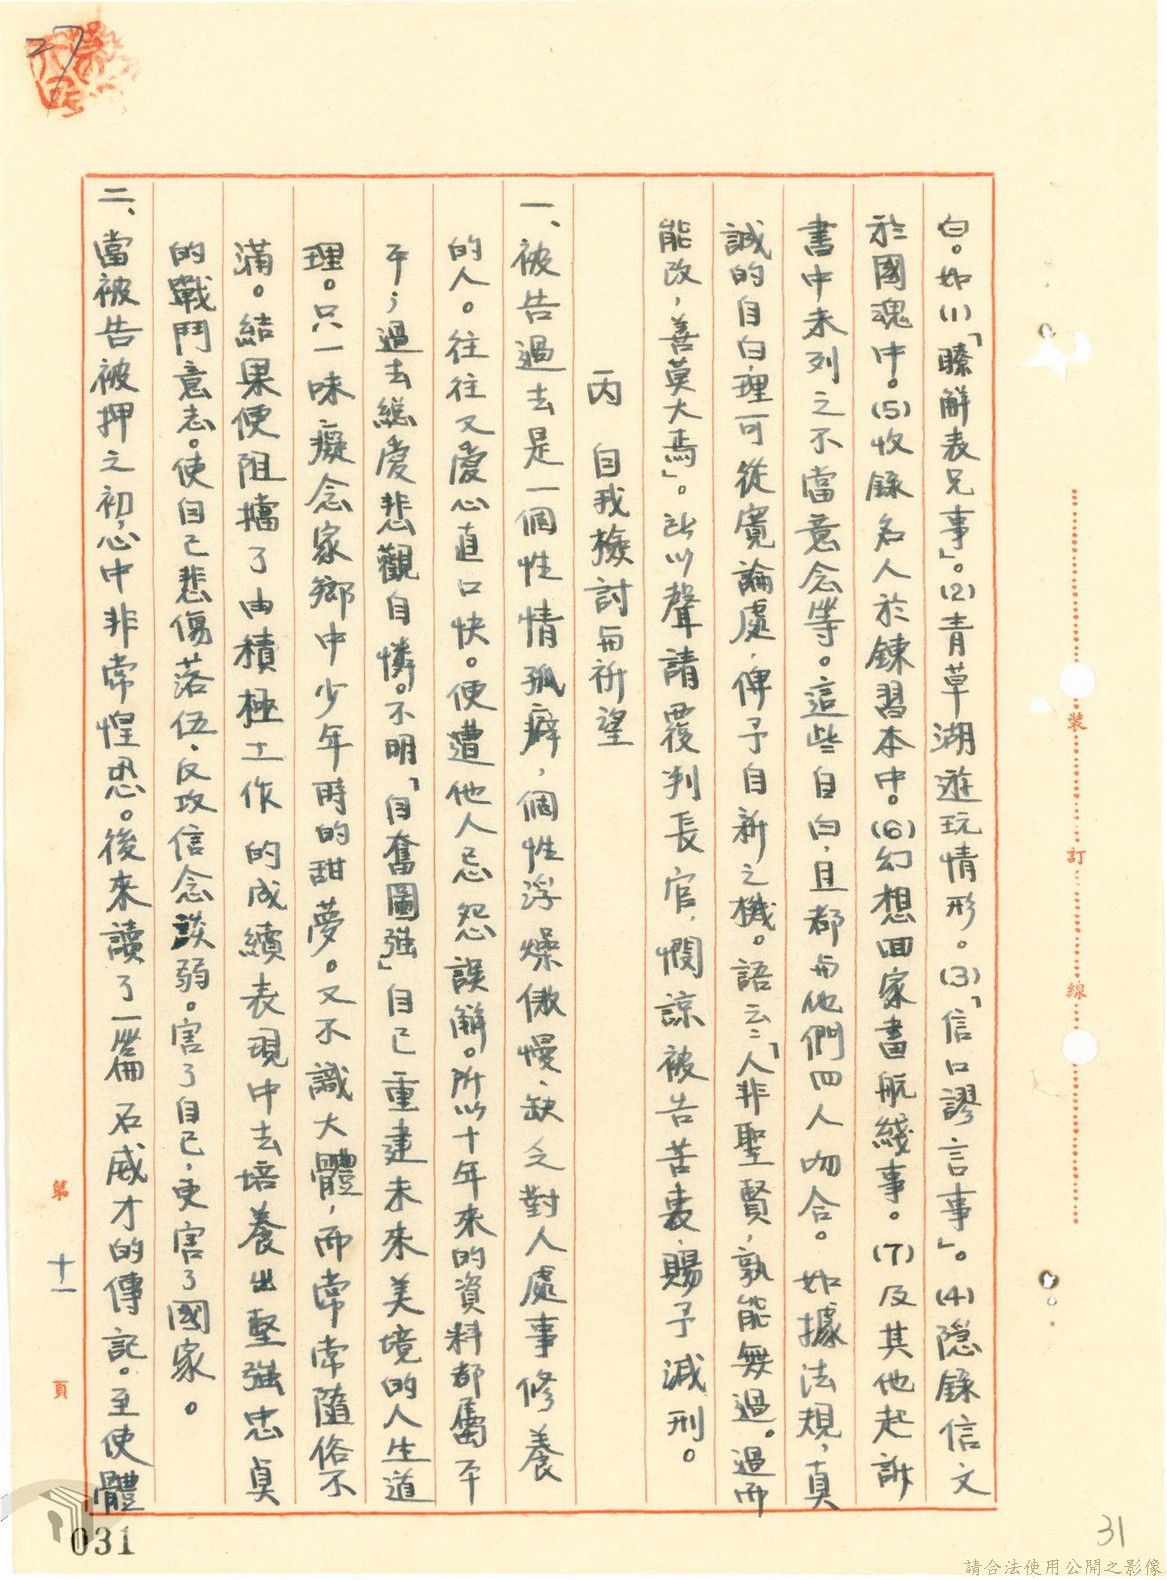 27
白。如(1)「瞭解表兄事」。(2)青草湖遊玩情形。(3)「信口謬言事」。(4)隐錄信文
於國魂中。(5)收錄名人於鍊習本中。(6)幻想回家畫航綫事。(7)及其他起訴
書中未列之不當意念等。這些自白,且都与他們四人吻合。如據法規,真
誠的自白,理可從寬論處,俾予自新之機。語云:「人非聖賢,孰能無過。過而
能改,善莫大焉」。所以聲請覆判長官,憫諒被告苦衷,賜予減刑。
丙 自我檢討与祈望
一、被告過去是一個性情孤癖,個性浮燥傲慢、缺乏對人處事修養
的人。往往又愛心直口快。便遭他人忌怨誤解。所以十年來的資料都屬平
平;過去總愛悲觀自憐。不明「自奮圖強」自己重建未來美境的人生道
理。只一味癡念家鄉中少年時的甜夢。又不識大體,而常常隨俗不
滿。結果便阻擋了由積極工作的成績表現中去培養出堅強忠貞
的戰鬥意志。使自己悲傷落伍、反攻信念淡弱。害了自己,更害了國家。
二、當被告被押之初,心中非常惶恐。後來讀了一篇石威才的傳記。至使體
裝 訂 線
第 十一 頁
031
31
請合法使用公開之影像